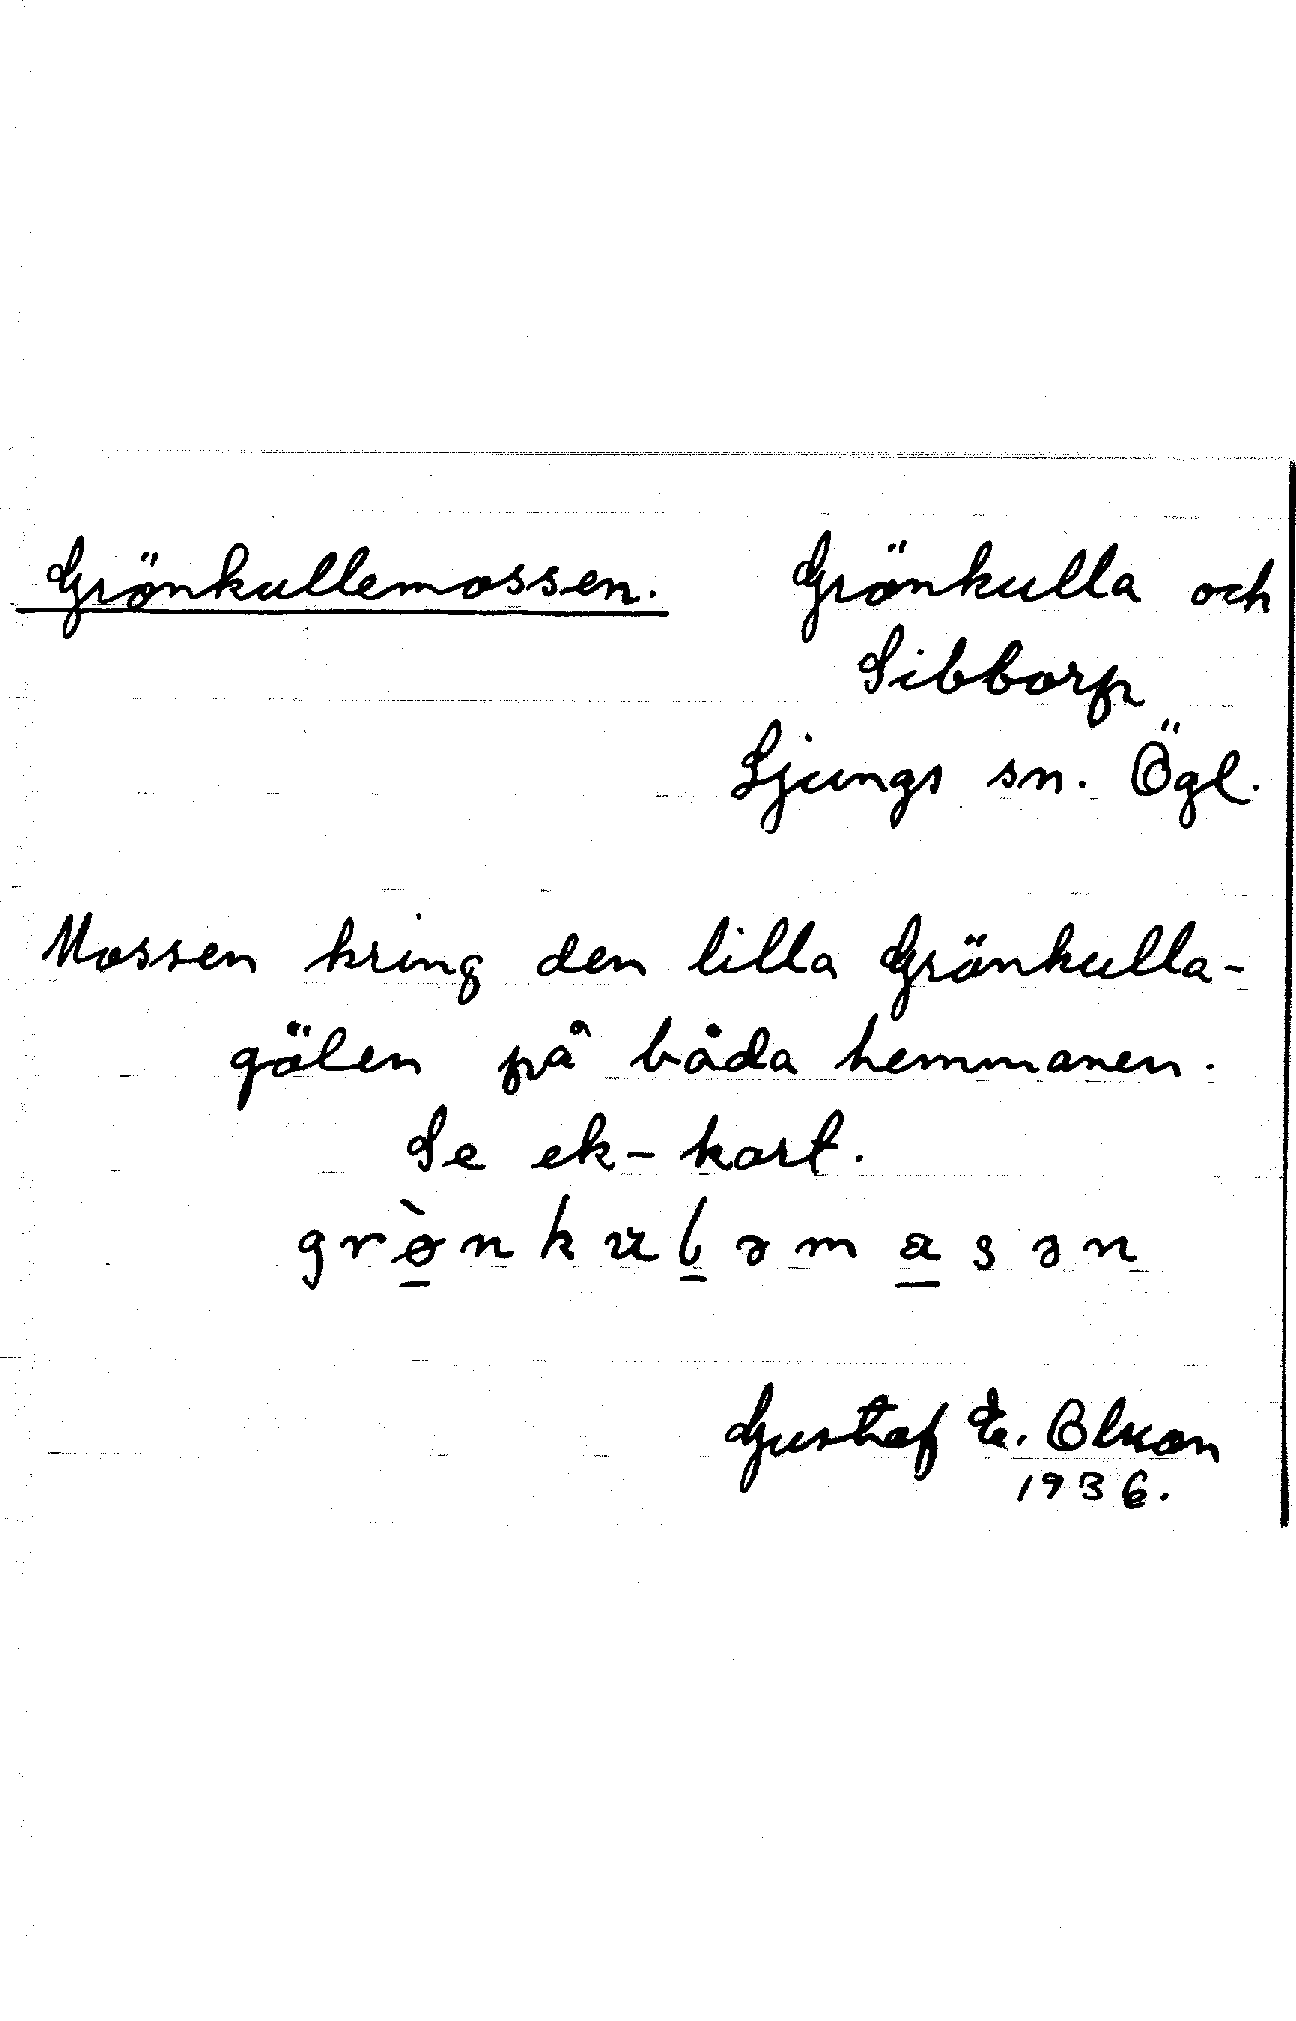 Grönkullemossen. Grönkulla och
Sibborp
Ljungs sn. Ögl.
Mossen kring den lilla Grönkulla-
gölen på båda hemmanen.
Se ek-kart.
grø̀nkuləmasən
Gustaf E. Olson
1936.